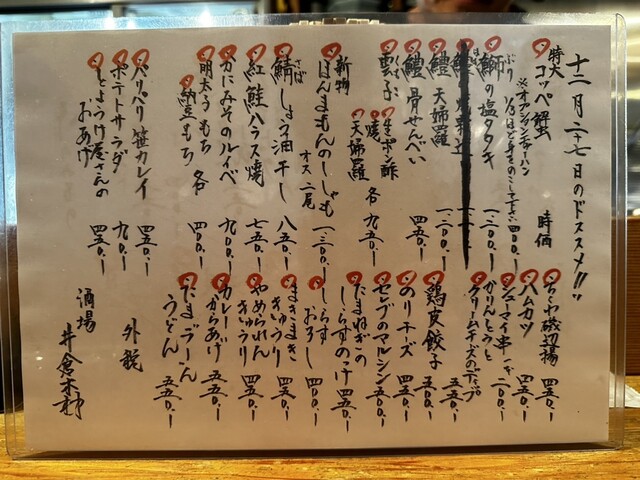 十二月二十七日のドススメ!!
特大 コッペ蟹 時価
※オプションチャーハン
1/3ほど身をのこして下さい 400.-
ぶり
鰤の塩タタキ 一、二〇〇.-
鱧 天婦羅 一、二〇〇.-
鱧 骨せんべい 四五〇.-
くもこ
雲子 生ポン酢
焼
天婦羅 各 九五〇.-
新物
ほんまもんのししゃも 一、三〇〇.-
オス 二尾
さば
鯖 しょう油干し 八五〇.-
紅鮭ハラス焼 七五〇.-
かにみそのルイベ 九〇〇.-
明太子もち
納豆もち 各 四〇〇.-
パリパリ笹カレイ 四五〇.-
ポテトサラダ 九〇.-
おあげ 四五〇.-
ちくわ磯辺揚 四五〇.-
ハムカツ 四五〇.-
シューマイ串 一本 二〇〇.-
かりんとうと
クリームチーズのディップ 五五〇.-
鶏皮餃子 五〇〇.-
のりチーズ 四五〇.-
セレブのマルシン 五〇〇.-
たまねぎの
しらすのっけ 四五〇.-
しらす
おろし 四〇〇.-
まきまき
きゅうり 四五〇.-
やめられん
きゅうり 四五〇.-
カレー
からあげ 五五〇.-
たまラー
うどん 五五〇.-
外税
酒場 井倉木材